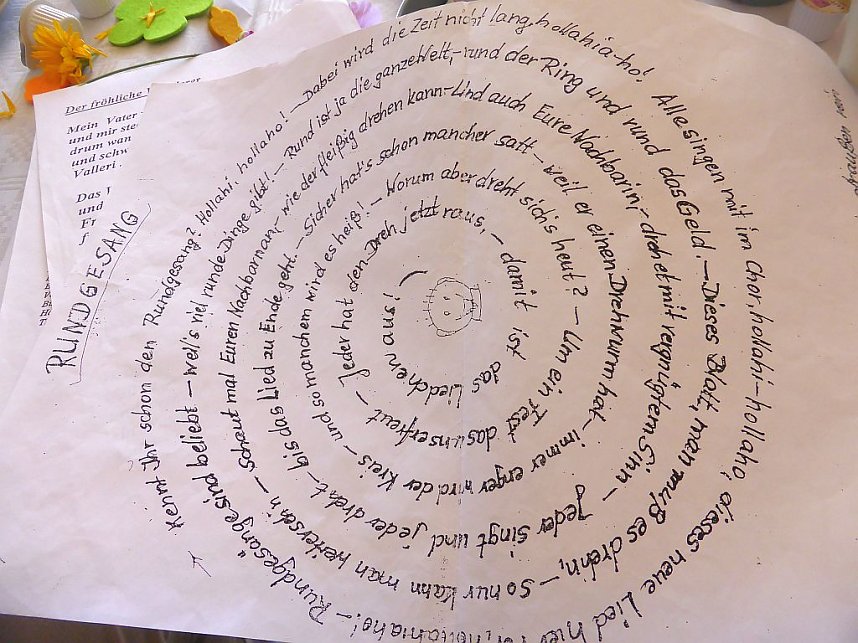 Der fröhliche
Mein Vater
und mir
drum wan
und schw
Valleri
Das
und
RUNDGESANG
Kennt Ihr schon den Rundgesang? Hollahi, hollaho! – Dabei wird die Zeit nicht lang, hollahia-ho! Alle singen mit im Chor, hollahi-hollaho, dieses neue Lied hier vor, hollahiaho! –
"Rundgesänge sind beliebt – weil's viel runde Dinge gibt! – Rund ist ja die ganze Welt, – rund der Ring und rund das Geld. – Dieses Blatt, man muß es drehn, – so nur kann man weitersehn –
Schaut mal Euren Nachbarn an, – wie der fleißig drehen kann – Und auch Eure Nachbarin, – drehet mit vergnügtem Sinn – Jeder singt und jeder dreht –
bis das Lied zu Ende geht. – Sicher hat's schon mancher satt – weil er einen Drehwurm hat – immer enger wird der Kreis –
und so manchem wird es heiß! – Worum aber dreht sich's heut? – Um ein Fest das uns erfreut –
Jeder hat den Dreh jetzt raus, – damit ist das Liedchen aus!